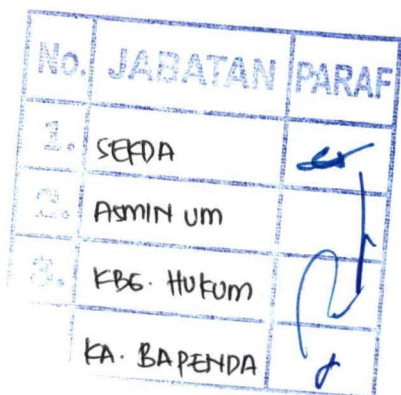 No. JABATAN PARAF
1. SEKDA
2. ASMIN UM
3. KBG. HUKUM
KA. BAPENDA